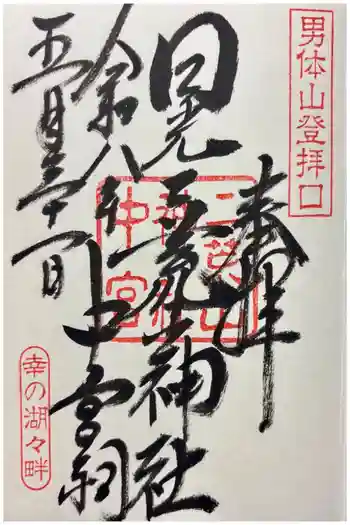 男体山登拝口
奉拝
日光二荒山神社
中宮祠
令和八年
五月三十一日
二荒山
神社
中宮
幸の湖々畔